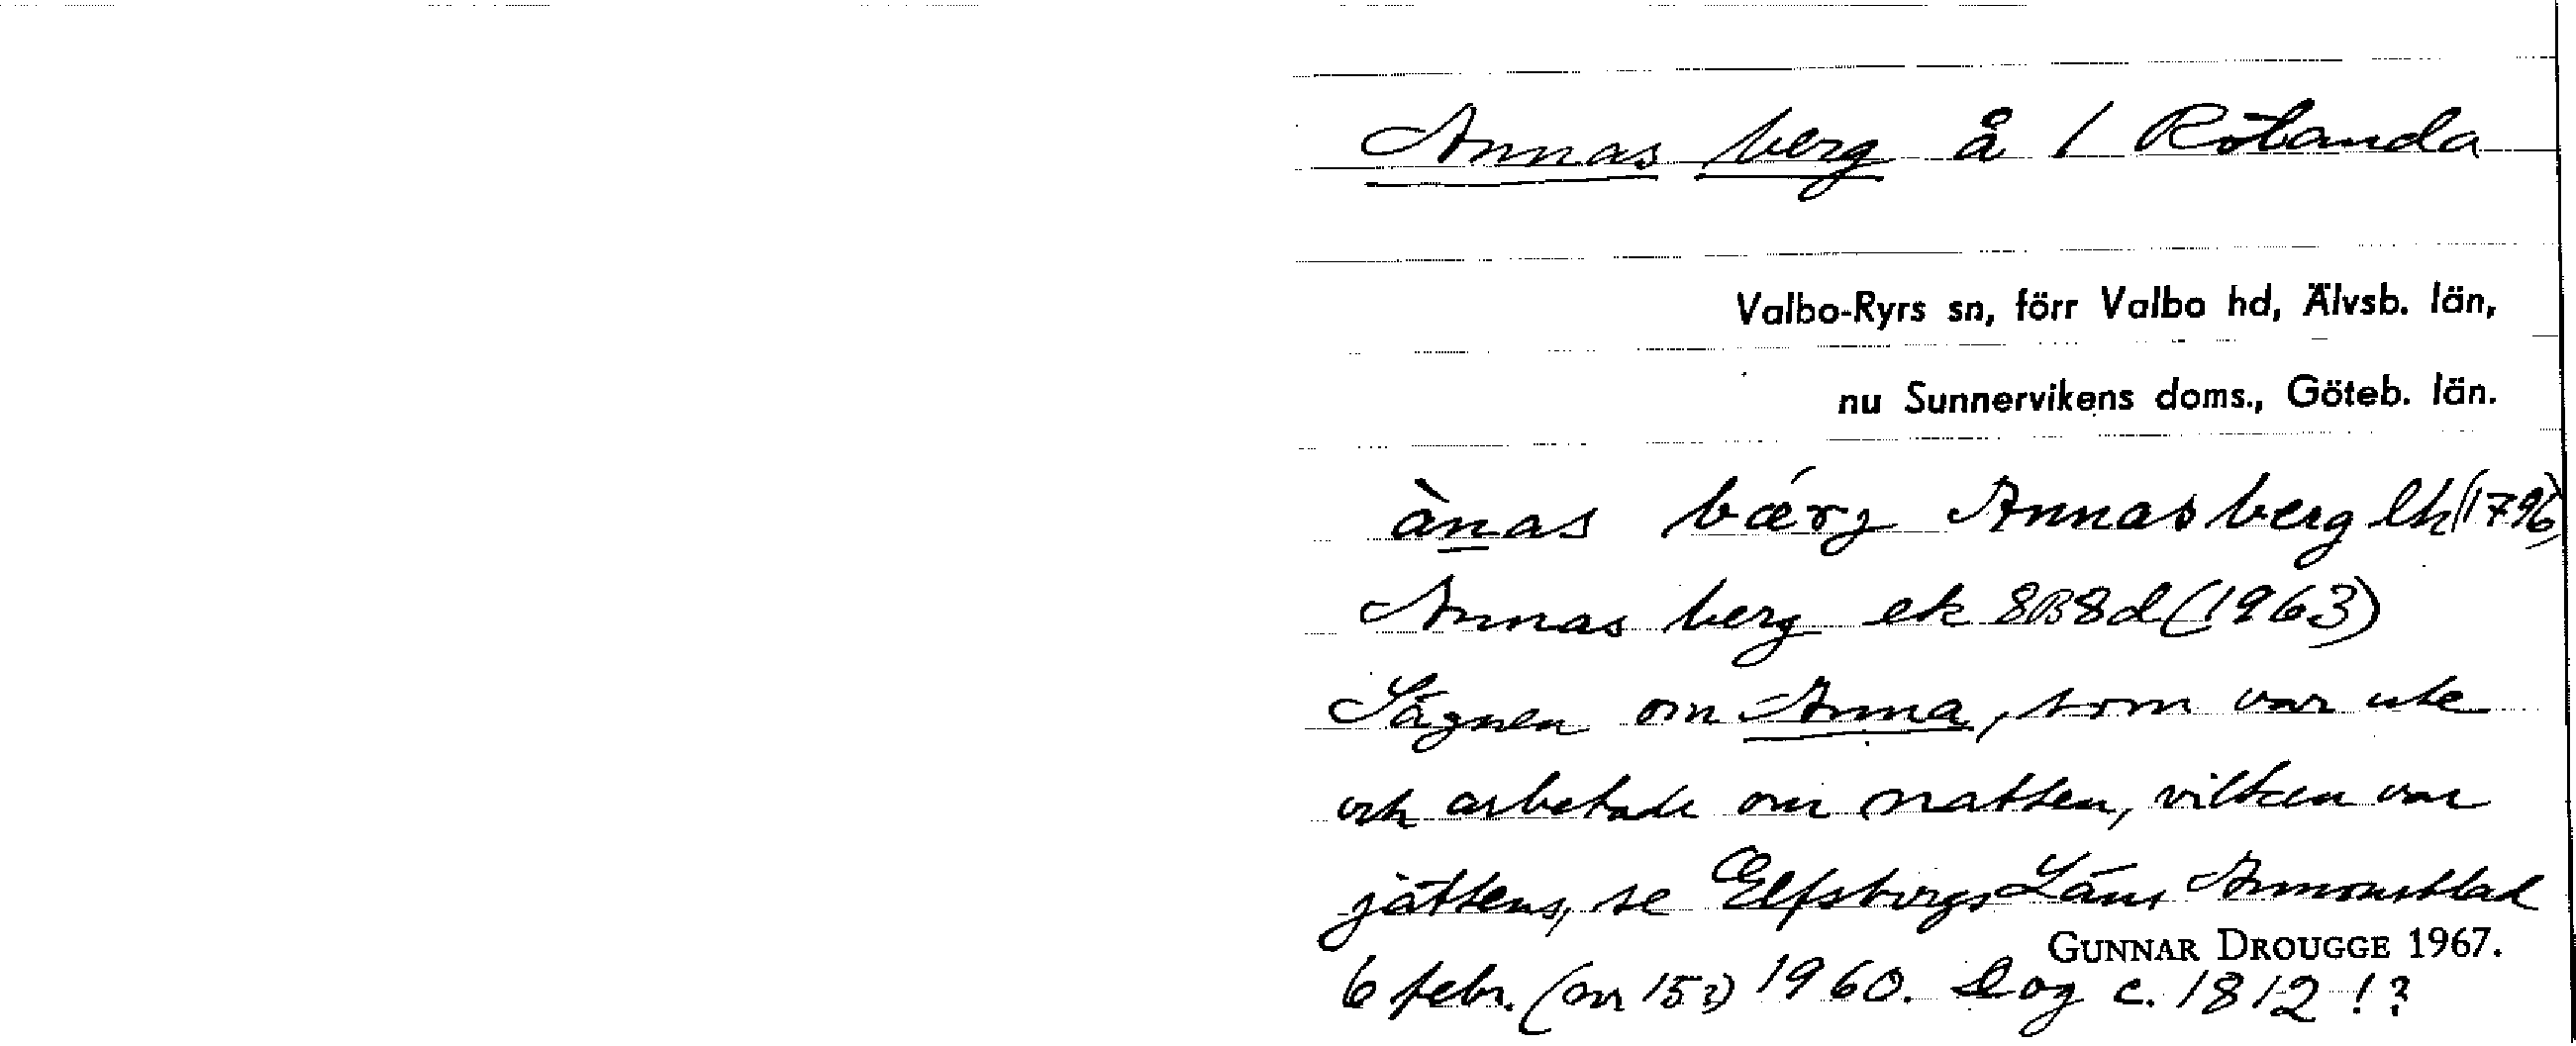 Annas berg å 1 Rölanda
Valbo-Ryrs sn, förr Valbo hd, Älvsb. län,
nu Sunnervikens doms., Göteb. län.
ànas bærg Annasberg lh (1796)
Annas berg ek 8B8d (1963)
Sägnen om Anna, som var ute
och arbetade om natten, vilken var
jättens, se Elfsborgs Läns Annonsblad
GUNNAR DROUGGE 1967.
6 febr. (nr 15?) 1960. Dog c. 1812!?